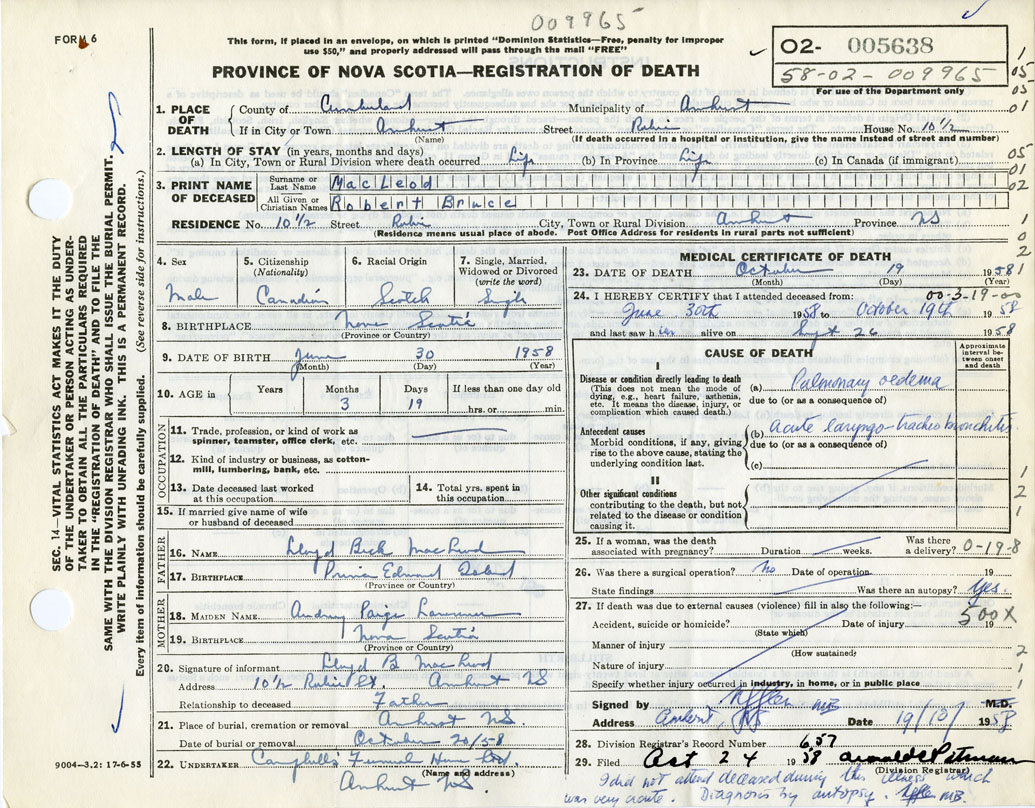 009965
FORM 6
This form, if placed in an envelope, on which is printed "Dominion Statistics—Free, penalty for improper
use $50," and properly addressed will pass through the mail "FREE"
02- 005638
58-02-009965
For use of the Department only
PROVINCE OF NOVA SCOTIA—REGISTRATION OF DEATH
1. PLACE OF DEATH County of Cumberland Municipality of Amherst
If in City or Town Amherst Street House No. 10 1/2
(Name) (If death occurred in a hospital or institution, give name instead of street and number)
2. LENGTH OF STAY (in years, months and days)
(a) In City, Town or Rural Division where death occurred Life (b) In Province Life (c) In Canada (if immigrant)
3. PRINT NAME OF DECEASED
Surname or Last Name MacLeod
All Given or Christian Names Robert Bruce
RESIDENCE No. 10 1/2 Street City, Town or Rural Division Amherst Province NS
(Residence means usual place of abode. Post Office Address for residents in rural parts not sufficient)
4. Sex Male
5. Citizenship (Nationality) Canadian
6. Racial Origin Scotch
7. Single, Married, Widowed or Divorced (write the word) Single
8. BIRTHPLACE Nova Scotia
(Province or Country)
9. DATE OF BIRTH June 30 1958
(Month) (Day) (Year)
10. AGE in Years Months 3 Days 19 If less than one day old hrs. or min.
OCCUPATION
11. Trade, profession, or kind of work as
spinner, teamster, office clerk, etc.
12. Kind of industry or business, as cotton-
mill, lumbering, bank, etc.
13. Date deceased last worked
at this occupation
14. Total yrs. spent in
this occupation
15. If married give name of wife
or husband of deceased
FATHER
16. NAME Lloyd MacLeod
17. BIRTHPLACE Prince Edward Island
(Province or Country)
MOTHER
18. MAIDEN NAME Audrey Paige
19. BIRTHPLACE Nova Scotia
(Province or Country)
20. Signature of informant Lloyd B MacLeod
Address 10 1/2 St Amherst NS
Relationship to deceased Father
21. Place of burial, cremation or removal Amherst NS.
Date of burial or removal October 20/58
22. UNDERTAKER Campbell's Funeral Home Ltd
(Name and address)
Amherst NS.
MEDICAL CERTIFICATE OF DEATH
23. DATE OF DEATH October 19 1958
(Month) (Day) (Year)
24. I HEREBY CERTIFY that I attended deceased from: 00-3-19-00
June 30th 1958 to October 19th 1958
and last saw h im alive on Sept 26 1958
CAUSE OF DEATH
Approximate interval between onset and death
I
Disease or condition directly leading to death
(This does not mean the mode of
dying, e.g., heart failure, asthenia,
etc. It means the disease, injury, or
complication which caused death.)
(a) Pulmonary oedema
due to (or as a consequence of)
Antecedent causes
Morbid conditions, if any, giving
rise to the above cause, stating the
underlying condition last.
(b) Acute laryngo-tracheobronchitis
due to (or as a consequence of)
(c)
II
Other significant conditions
contributing to the death, but not
related to the disease or condition
causing it.
25. If a woman, was the death
associated with pregnancy? Duration weeks. Was there
a delivery? 0-19-8
26. Was there a surgical operation? No Date of operation 19
State findings Was there an autopsy? Yes.
27. If death was due to external causes (violence) fill in also the following:— 500X
Accident, suicide or homicide? Date of injury 19
(State which)
Manner of injury
(How sustained)
Nature of injury
Specify whether injury occurred in industry, in home, or in public place
Signed by MD M.D.
Address Amherst, NS Date 19/10/ 1958
28. Division Registrar's Record Number 657
29. Filed Oct 24 1958
(Division Registrar)
I did not attend deceased during this illness which
was very acute. Diagnosis by autopsy. MD
SEC. 14—VITAL STATISTICS ACT MAKES IT THE DUTY
OF THE UNDERTAKER OR PERSON ACTING AS UNDER-
TAKER TO OBTAIN ALL THE PARTICULARS REQUIRED
IN THE "REGISTRATION OF DEATH" AND TO FILE THE
SAME WITH THE DIVISION REGISTRAR WHO SHALL ISSUE THE BURIAL PERMIT.
WRITE PLAINLY WITH UNFADING INK. THIS IS A PERMANENT RECORD.
Every item of information should be carefully supplied. (See reverse side for instructions.)
9004—3.2: 17-6-55
1
05
05
01
05
01
02
1
0
2
1
1
2
1
2
1
1